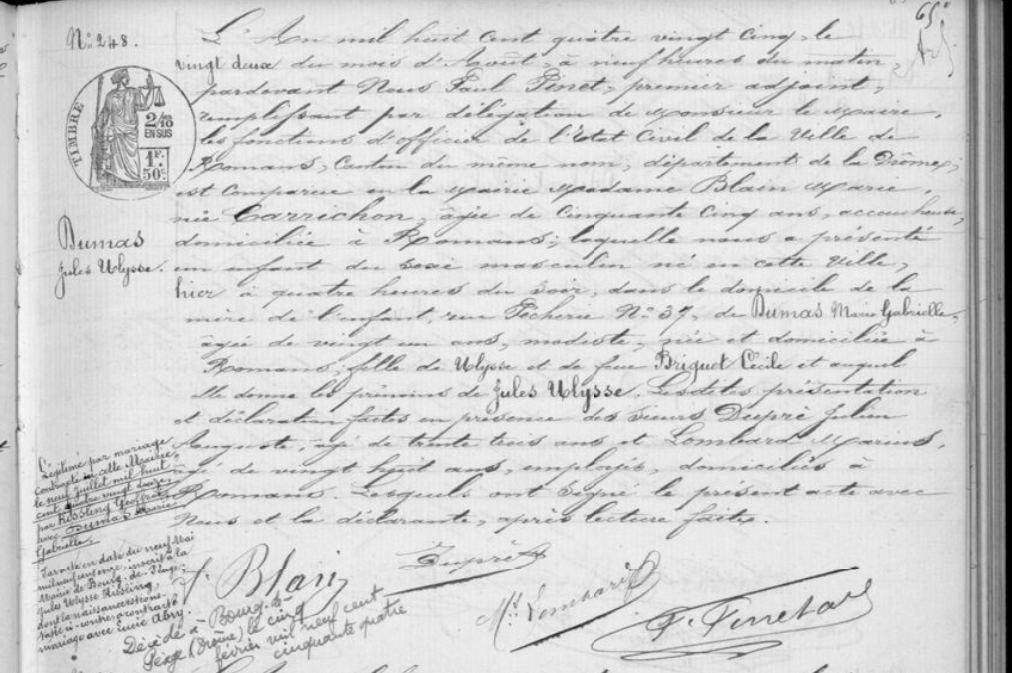 65
N° 248.
TIMBRE
2/10
EN SUS
1F.
50c.
Dumas
Jules Ulysse.
L'An mil huit cent quatre vingt cinq, le
vingt deux du mois d'Août, à neuf heures du matin,
pardevant Nous Paul Finet, premier adjoint,
remplissant par délégation de Monsieur le Maire,
les fonctions d'officier de l'Etat Civil de la Ville de
Romans, Canton du même nom, département de la Drôme,
est Comparue en la Mairie Madame Blain Marie,
née Carrichon, âgée de Cinquante Cinq ans, accoucheuse,
domiciliée à Romans; laquelle nous a présenté
un enfant du sexe masculin né en cette Ville,
hier à quatre heures du soir, dans le domicile de la
mère de l'enfant, rue Pêcherie N° 37, de Dumas Marie Gabrielle,
âgée de vingt un ans, modiste, née et domiciliée à
Romans, fille de Ulysse et de feue Briguet Cécile et auquel
elle donne les prénoms de Jules Ulysse. Lesdites présentation
et déclaration faites en présence des sieurs Dupré Julien
Auguste, âgé de trente trois ans et Lombard Marius,
âgé de vingt huit ans, employés, domiciliés à
Romans. Lesquels ont signé le présent acte avec
Nous et la déclarante, après lecture faite.
Légitimé par mariage
contracté en cette Mairie
le neuf Juillet mil huit
cent quatre vingt douze
par Kissling
avec Dumas Marie
Gabrielle.
Par acte en date du neuf Mai
mil neuf cent onze, inscrit à la
Mairie de Bourg-de-Péage,
Jules Ulysse Kissling,
dont la naissance est cons-
tatée ci-contre a contracté
mariage avec Lucie Abry.
Blain
Dupré
Lombard
P. Finet
Décédé à Bourg-de-
Péage (Drôme) le cinq
février mil neuf cent
cinquante quatre